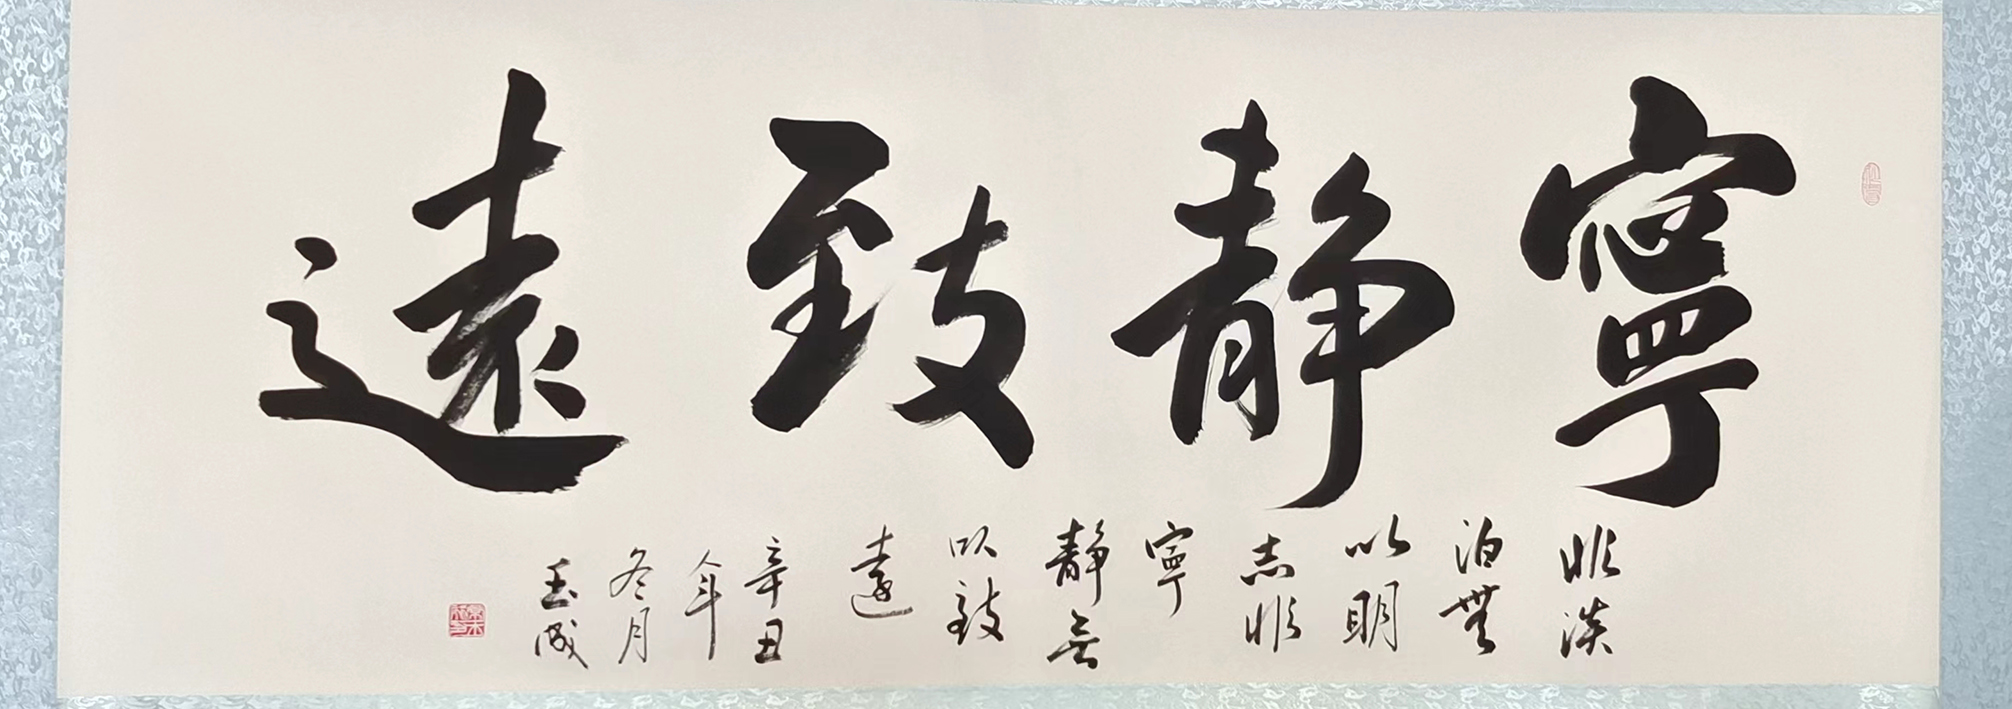 寧靜致遠
非淡
泊無
以明
志非
寧
靜無
以致
遠
辛丑
年
冬月
玉成